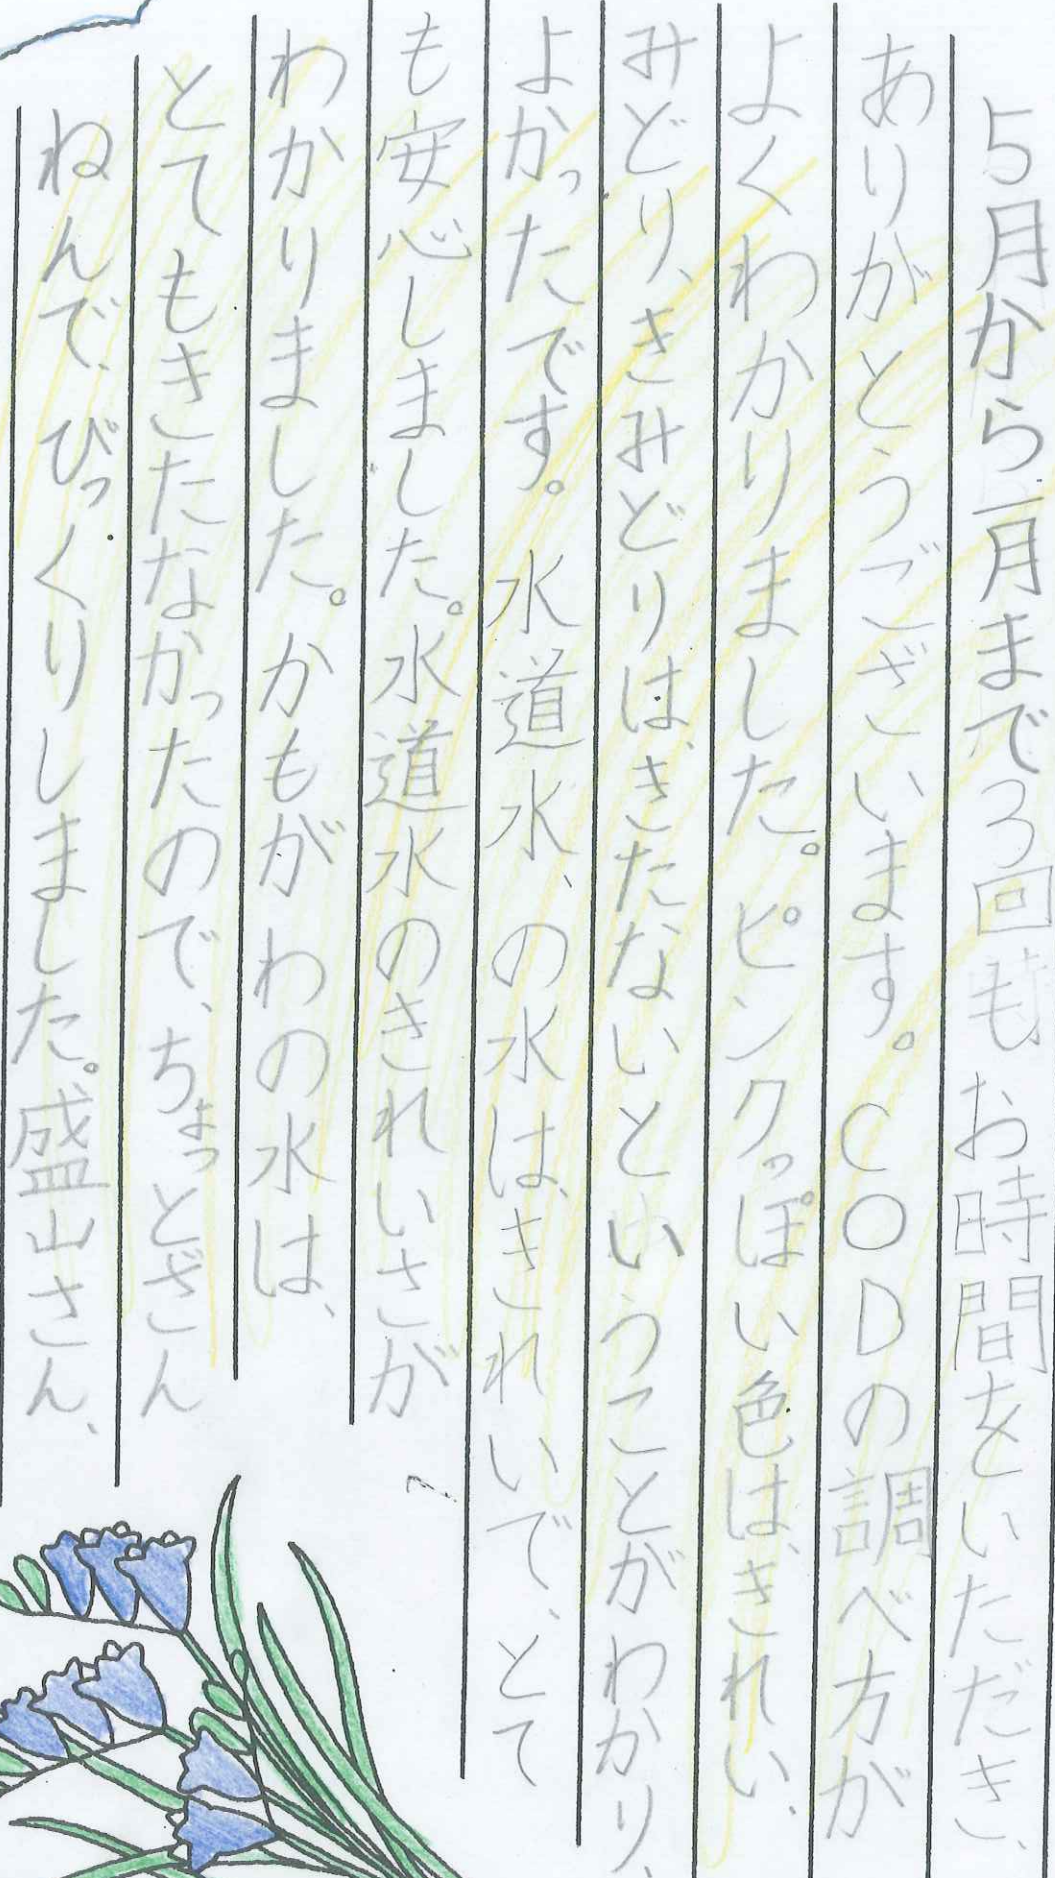 ５月から一月まで３回もお時間をいただき、
ありがとうございます。ＣＯＤの調べ方が
よくわかりました。ピンクっぽい色は、きれい、
みどり、きみどりは、きたないということがわかり、
よかったです。水道水、の水は、きれいで、とて
も安心しました。水道水のきれいさが
わかりました。かもがわの水は、
とてもきたなかったので、ちょっとざん
ねんで、びっくりしました。盛山さん、